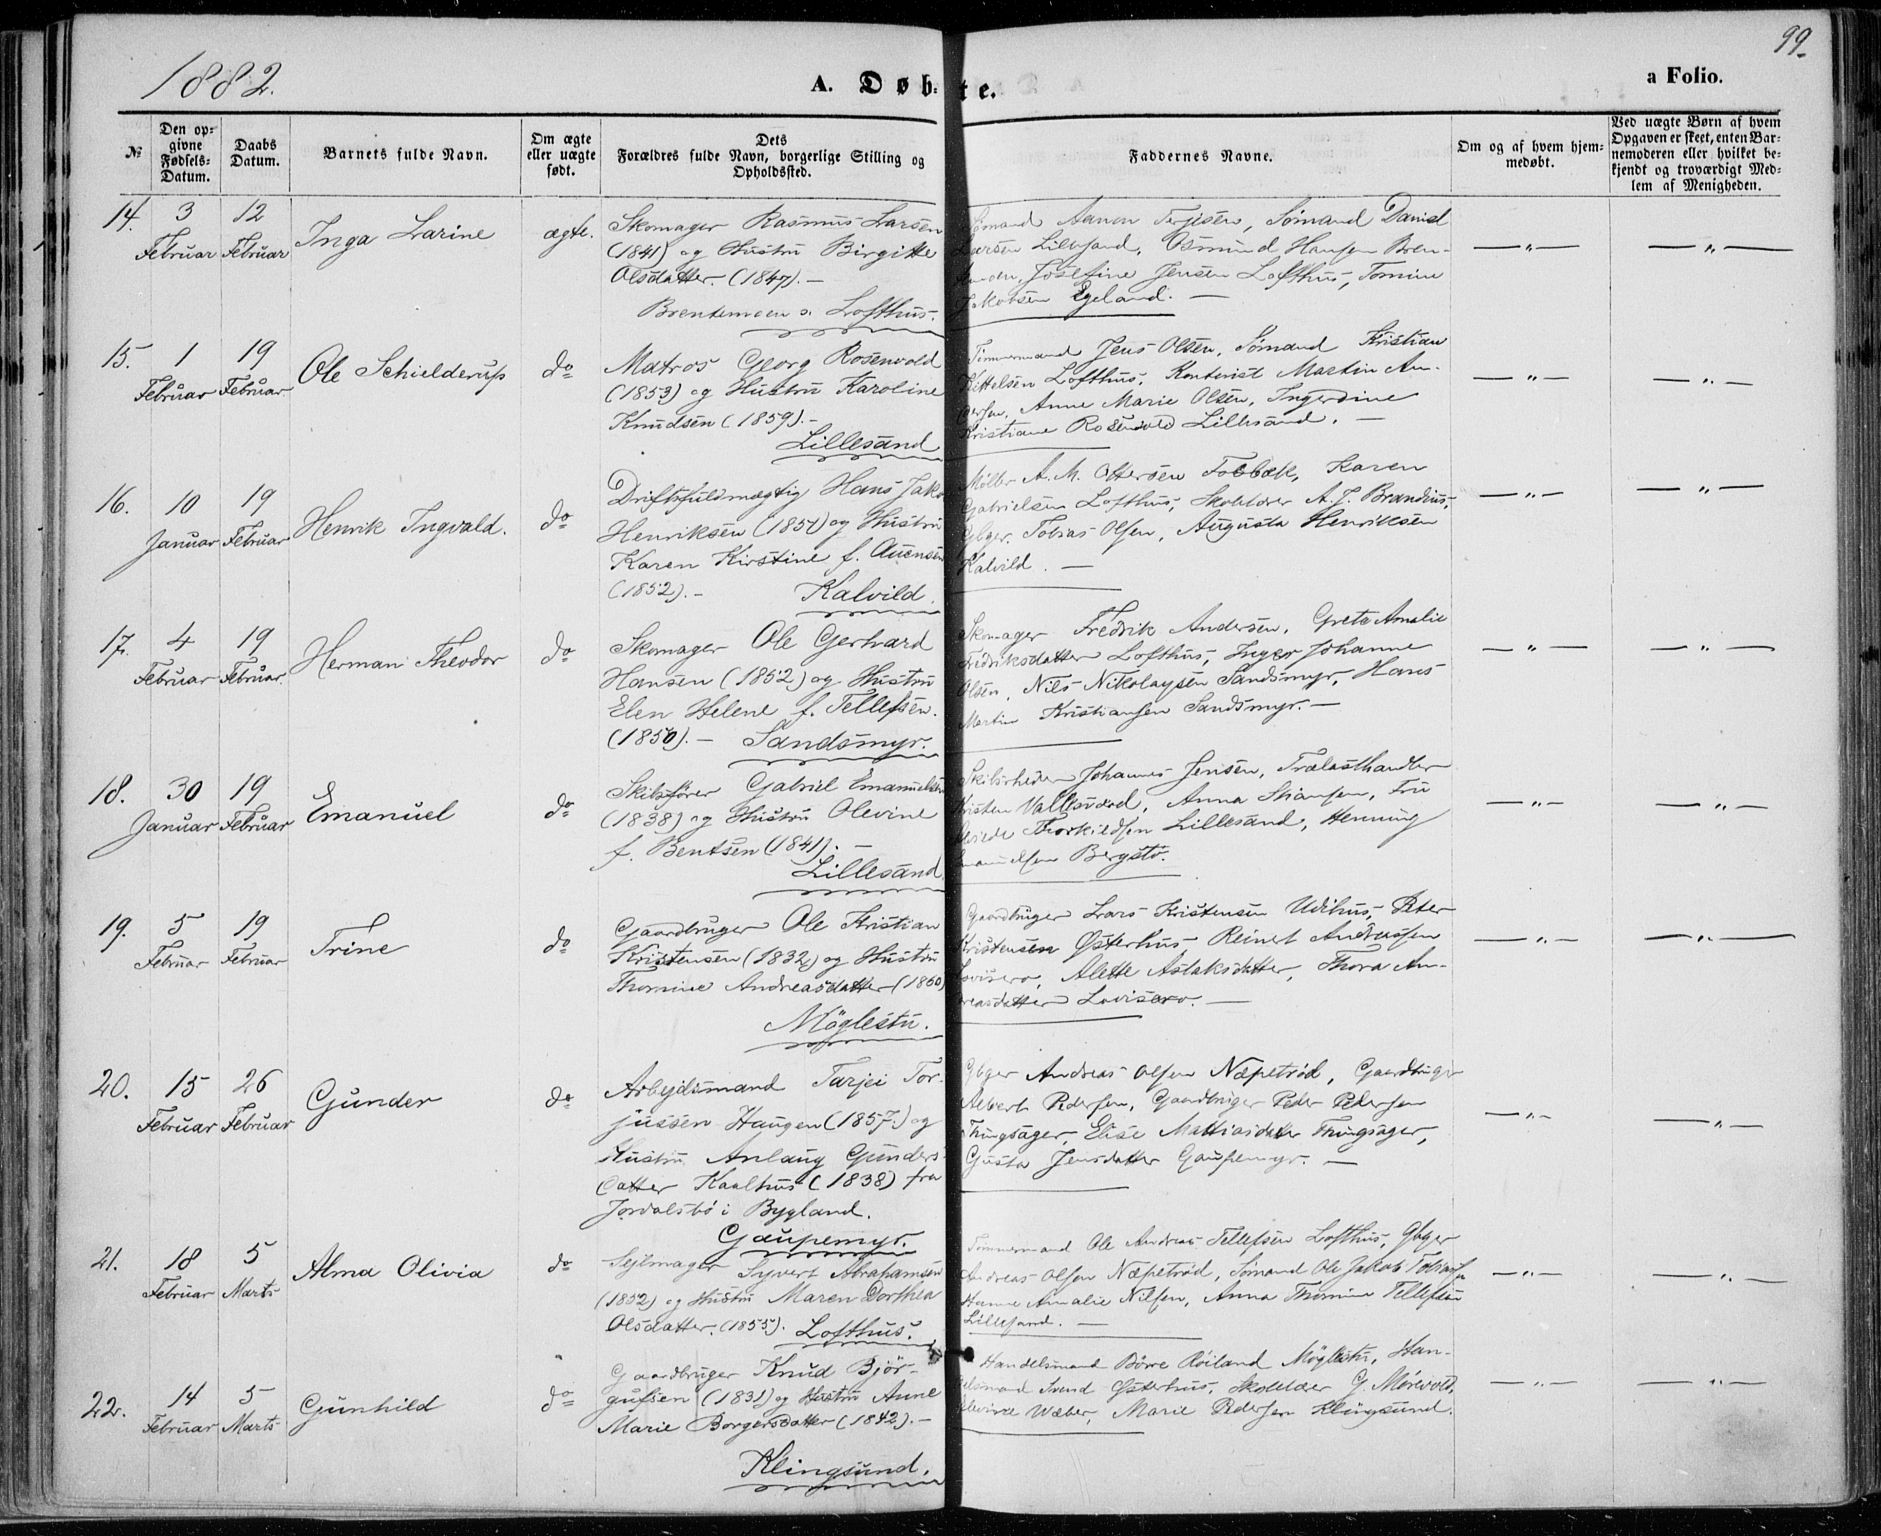 1882.
A. Døb=te.
99.
a Folio.
№
Den op=
givne
Fødsels=
Datum.
Daabs
Datum.
Barnets fulde Navn.
Om ægte
eller uægte
født.
Dets
Forældres fulde Navn, borgerlige Stilling og
Opholdssted.
Faddernes Navne.
Om og af hvem hjem=
medøbt.
Ved uægte Børn af hvem
Opgaven er skeet, enten Bar=
nemoderen eller hvilket be=
kjendt og troværdigt Med=
lem af Menigheden.
14. 3 Februar 12 Februar Inga Larine ægte.
Skomager Rasmus Larsen
(1841) og Hustru Birgitte
Olsdatter. (1847). —
Brentemoen s. Lofthus.
Sømand Aanon Terjesen, Sømand Daniel
Larsen Lillesand, Osmund Hansen Bren-
Josefine Jensen Lofthus, Tomine
Jakobsen Egeland. —
— „ — — „ —
15. 1 Februar 19 Februar Ole Schielderup do
Matros Georg Rosenvold
(1853) og Hustru Karoline
Knudsen (1859). —
Lillesand
Tømmermand Jens Olsen, Sømand Kristian
Kittelsen Lofthus, Kontorist Martin An-
dersen, Anne Marie Olsen, Ingerdine
Kristiane Rosenvold Lillesand. —
— „ — — „ —
16. 10 Januar 19 Februar Henrik Ingvald. do
Driftsfuldmægtig Hans Jak
Henriksen (1851) og Hustru
Karen Kirstine f. Auensen
(1852). — Kalvild.
Møller A. M. Ottersen Fosbæk, Karen
Gabrielsen Lofthus, Skolelærer A. J. Brandius,
Gbger. Tobias Olsen, Augusta Henriksen
Kalvild. —
— „ — — „ —
17. 4 Februar 19 Februar. Herman Theodor do
Skomager Ole Gerhard
Hansen (1852) og Hustru
Elen Helene f. Tellefsen.
(1850). — Sandsmyr.
Skomager Fredrik Andersen, Grete Amalie
Fredriksdatter Lofthus, Inger Johanne
Olsen, Nils Nikolaysen Sandsmyr, Hans
Martin Kristiansen Sandsmyr. —
— „ — — „ —
18. 30 Januar 19 Februar Emanuel do
Skibsfører Gabriel Emanuelsen
(1838) og Hustru Olevine
f. Bentsen (1841). —
Lillesand
Skibsrheder Johannes Jensen, Trælasthandler
Kristen Vallesværd, Anna Stiansen, Fru
Thorkildsen Lillesand, Henning
Emanuelsen Bergstø.
— „ — — „ —
19. 5 Februar 19 Februar Trine do
Gaardbruger Ole Kristian
Kristensen (1832) og Hustru
Thomine Andreasdatter (1850)
Møglestu.
Gaardbruger Lars Kristensen Udihus, Peter
Kristensen Østerhus, Reinert Andreassen
Lovisero, Alette Aslaksdatter, Thora An-
dreasdatter Lovisero. —
— „ — — „ —
20. 15 Februar 26 Februar Gunder do
Arbejdsmand Tarjei Tor-
jussen Haugen (1857.) og
Hustru Anlaug Gunders-
datter Kaalhus (1838) fra
Jordalsbø i Bygland.
Gaupemyr.
Gbger Andreas Olsen Næpetrød, Gaardbruger
Albert Pedersen, Gaardbruger Peder Pedersen
Thingsager, Elise Mathiasdatter Thingsager,
Gusta Jensdatter Gaupemyr. —
— „ — — „ —
21. 18 Februar 5 Marts Alma Olivia do
Sejlmager Syvert Abrahamsen
(1852) og Hustru Maren Dorthea
Olsdatter. (1855). Lofthus.
Tømmermand Ole Andreas Tellefsen Lofthus, Gbger
Andreas Olsen Næpetrød, Sømand Ole Jakob Tobiassen
Hanne Amalie Nilsen, Anna Thomine Tellefsen
Lillesand. —
— „ — — „ —
22. 14 Februar 5 Marts Gunhild do
Gaardbruger Knud Bjør-
gufsen (1831) og Hustru Anne
Marie Borgersdatter (1842). —
Klingsund.
Handelsmand Børre Røiland Møglestu, Han-
delsmand Svend Østerhus, Skolelær G. Mørevold,
Wæber, Marie Pedersen Klingsund.
— „ — — „ —